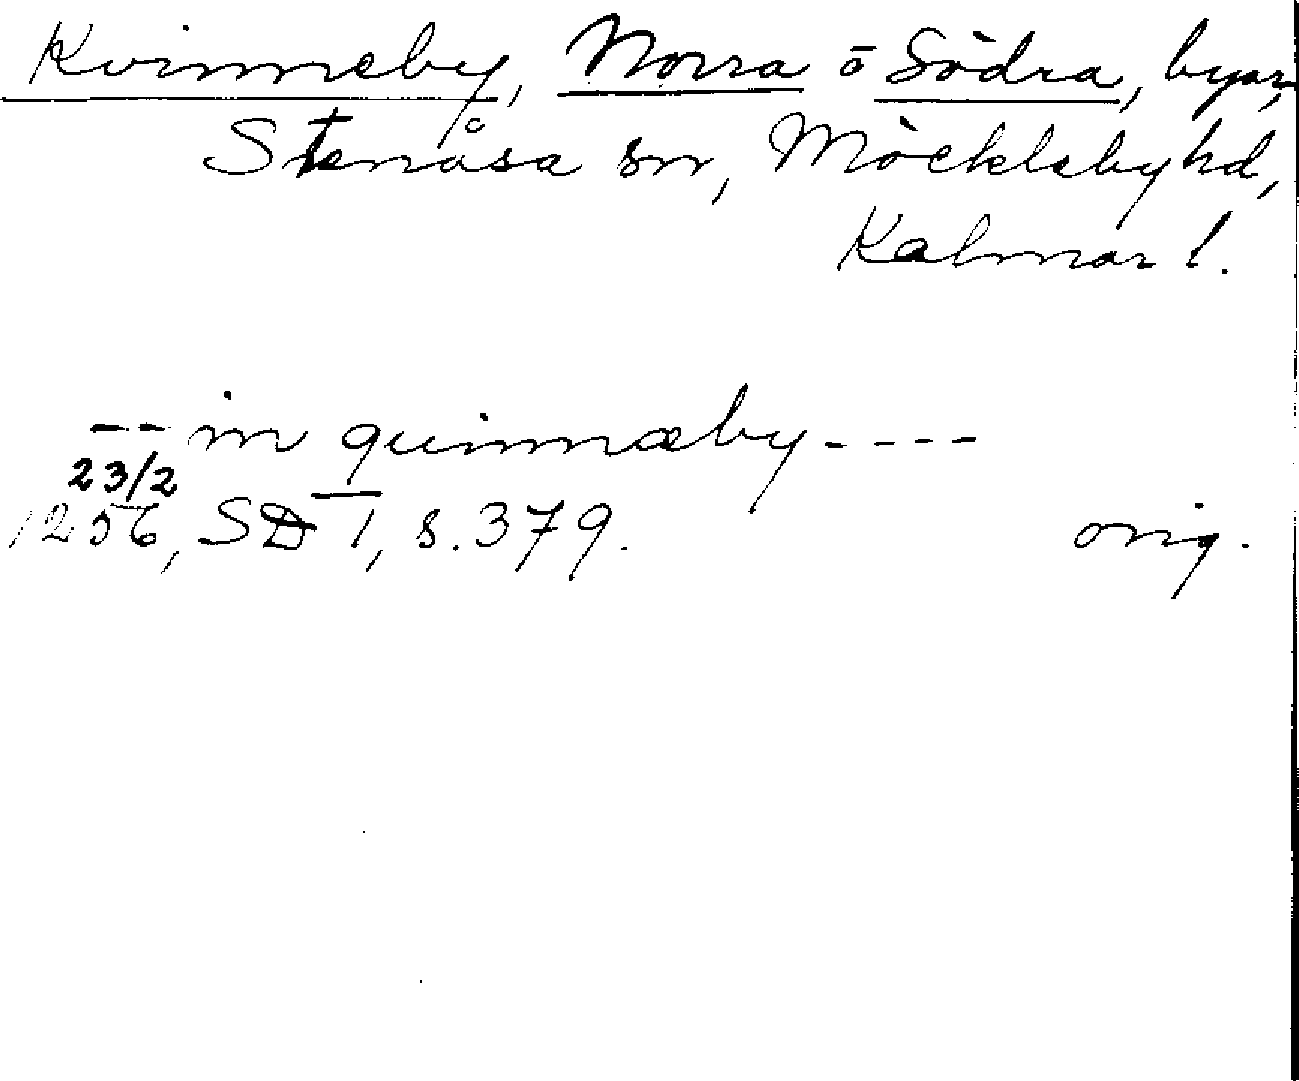 Kvinneby, Norra o Södra, byar,
Stenåsa sn, Möcklebyhd,
Kalmar l.
-- in quinnæby ----
23/2
1256, SD 1, s. 379. orig.